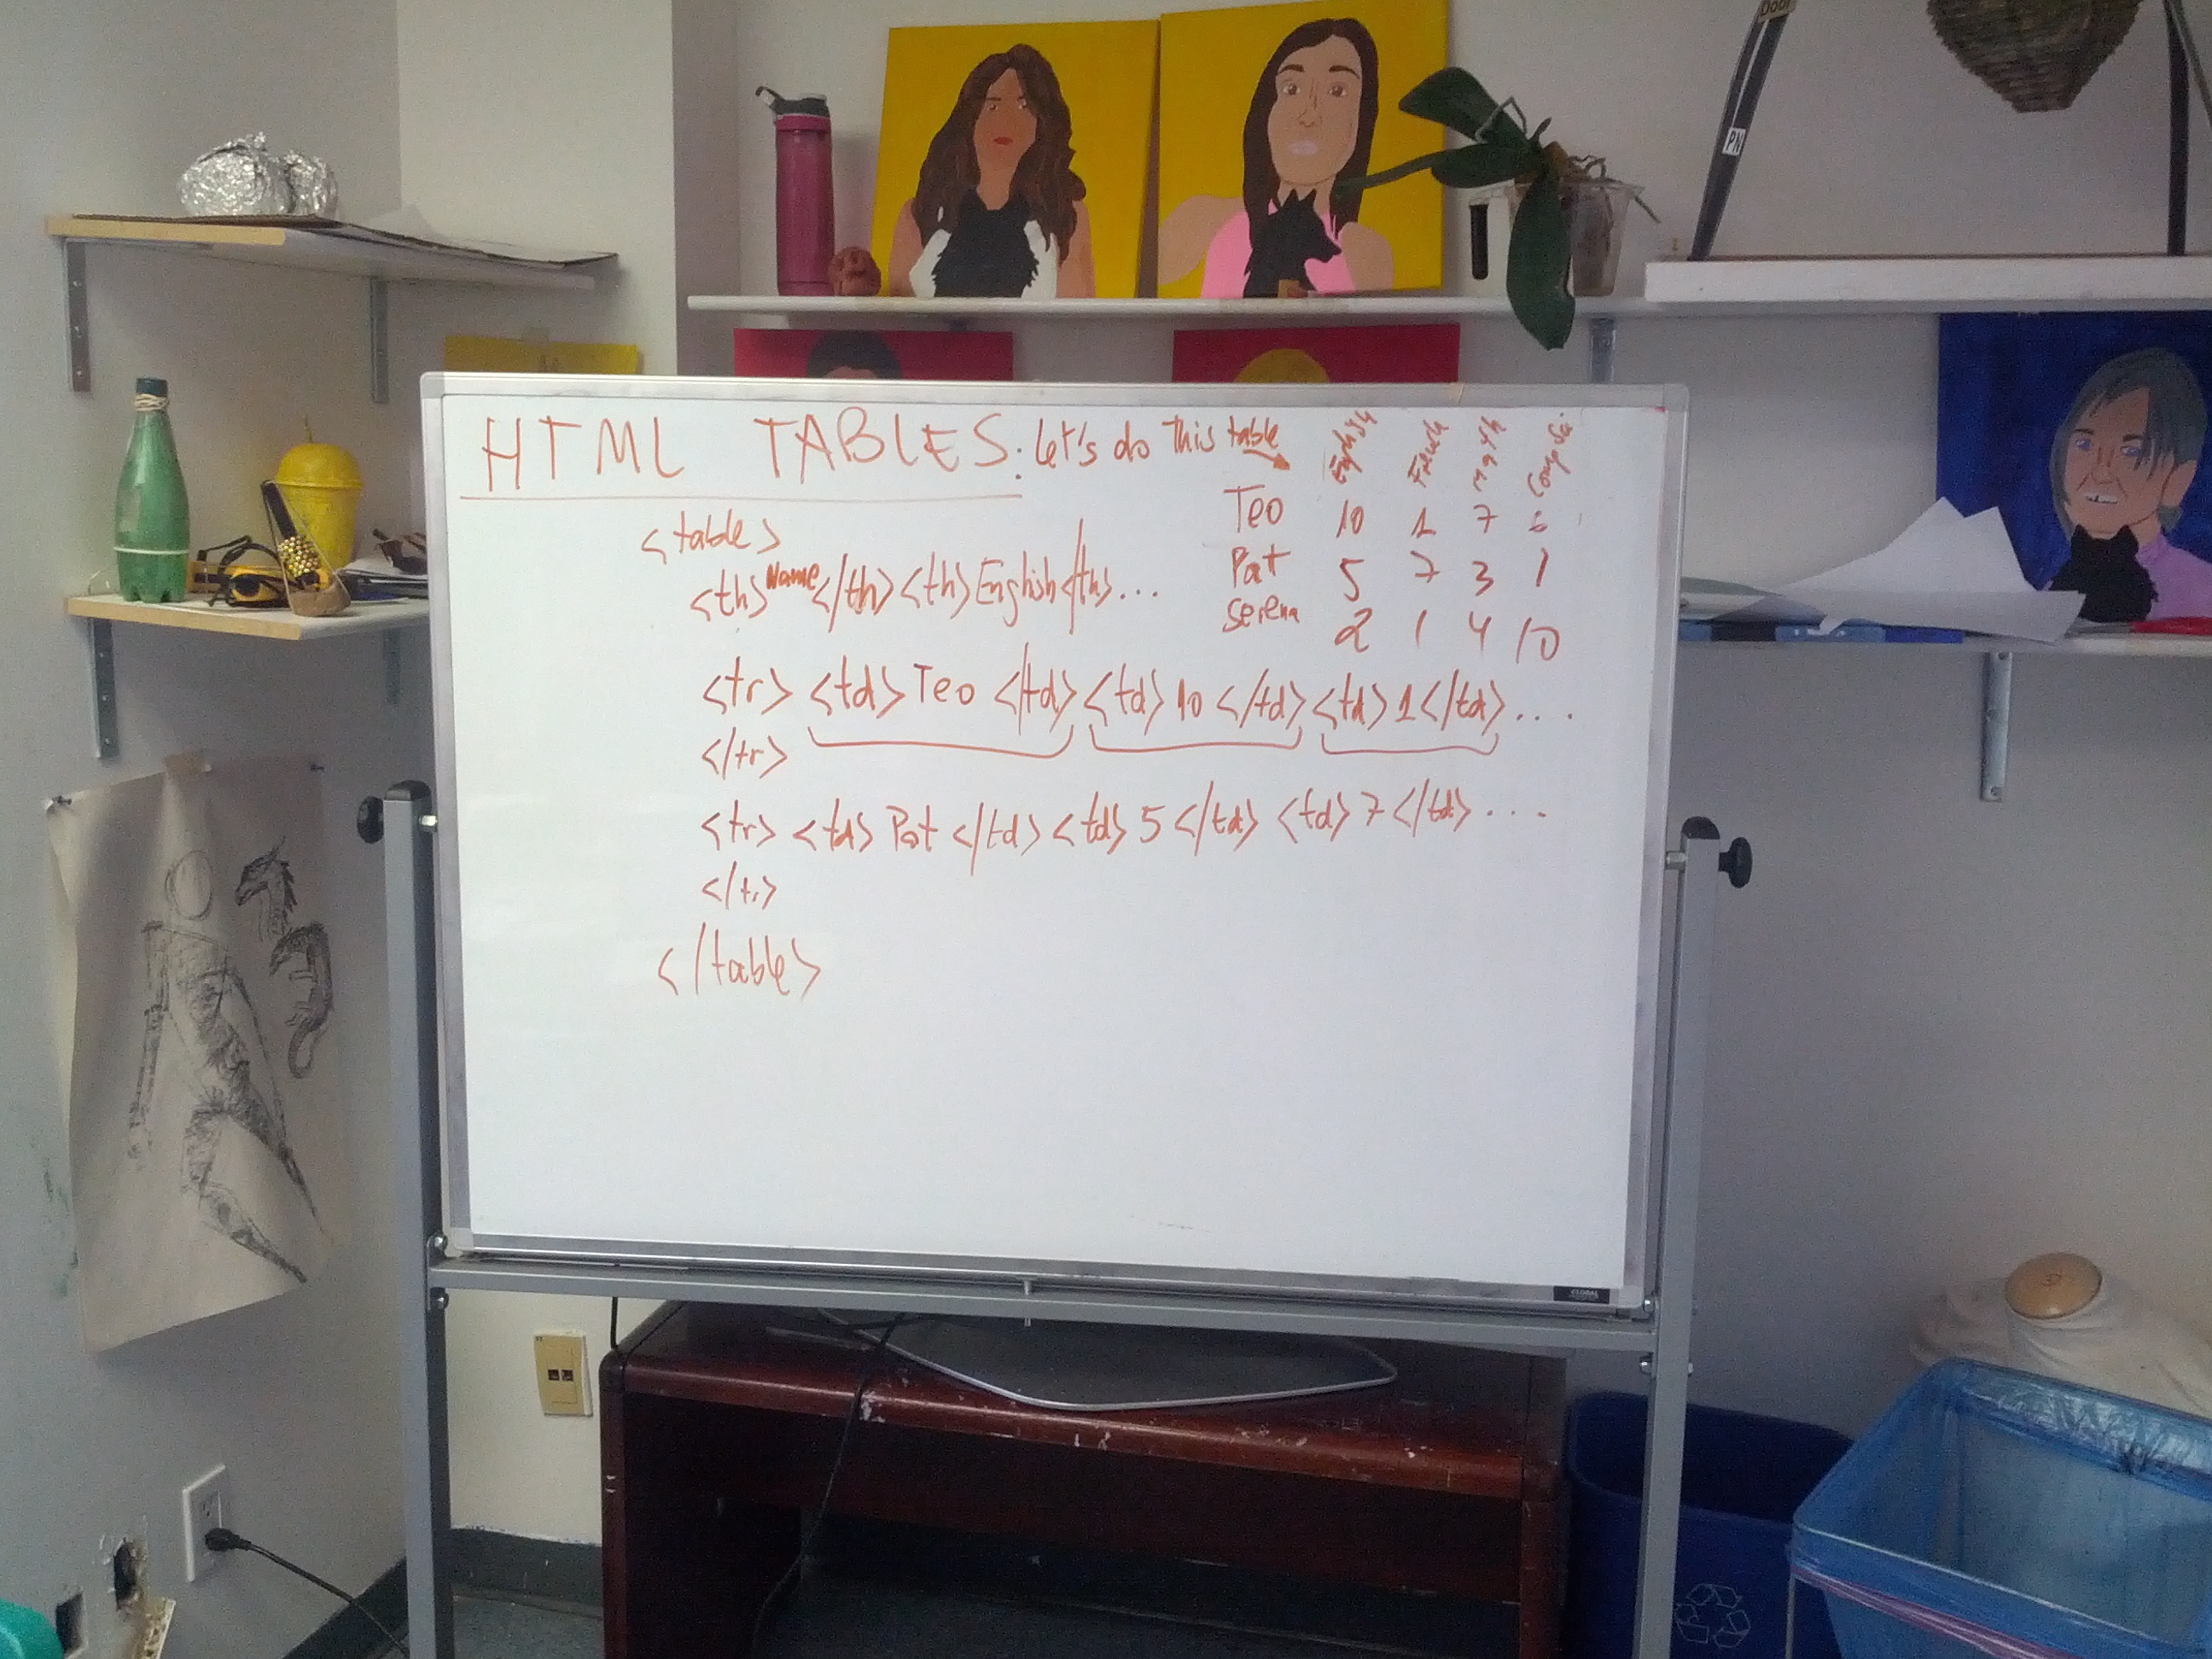 HTML TABLES: Let's do this table
English French Math Comp Sci.
Teo 10 1 7 6
Pat 5 7 3 1
Serena 2 1 4 10
<table>
<th>Name</th><th>English</th>...
<tr> <td>Teo </td> <td>10 </td> <td>1</td>....
</tr>
<tr> <td> Pat </td> <td> 5 </td> <td> 7 </td> ....
</tr>
</table>
PN
Door
GLOBAL